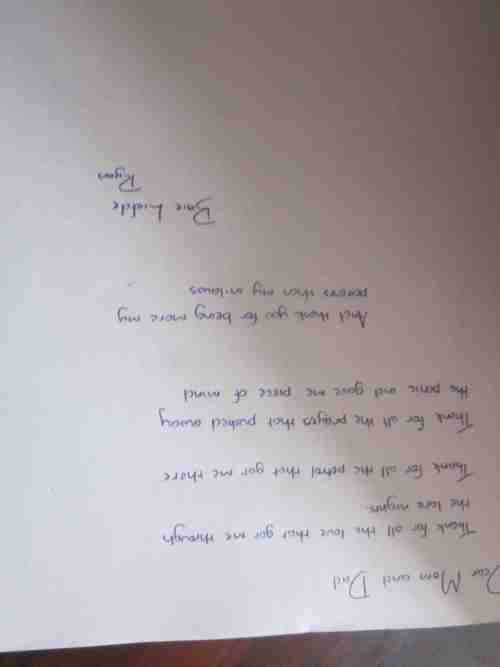 Dear Mom and Dad
Thank for all the love that got me through
the late nights
Thank for all the petrol that got me there
Thank for all the prayes that pushed away
the panic and gave me piece of mind
And thank you for being more my
parents than my inlaws